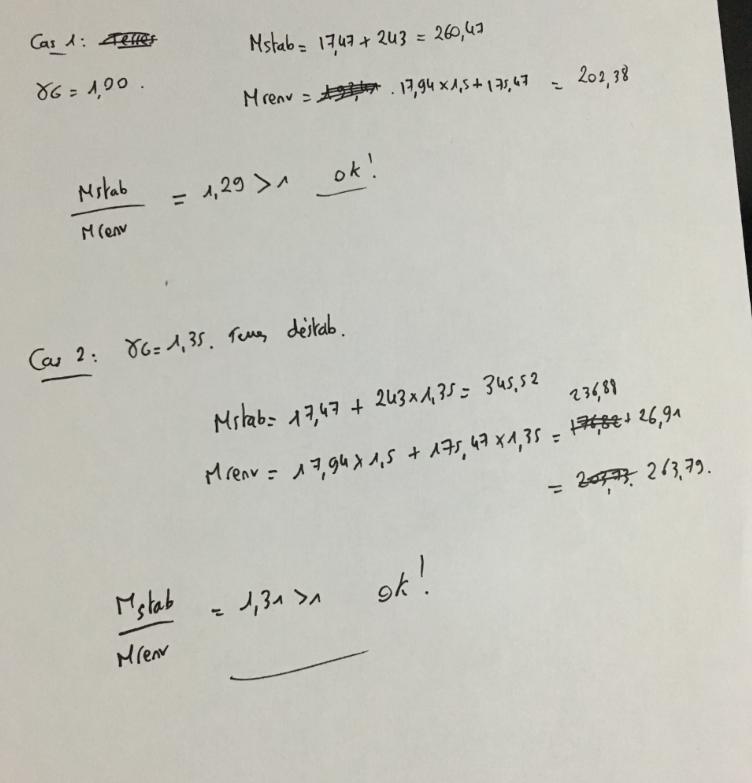 Cas 1:
Mstab = 17,47 + 243 = 260,47
γG = 1,00.
Mrenv = . 17,94 x 1,5 + 175,47 = 202,38
Mstab
Mrenv
= 1,29 > 1 ok!
Cas 2: γG = 1,35. Terres déstab.
Mstab = 17,47 + 243 x 1,35 = 345,52
236,88
Mrenv = 17,94 x 1,5 + 175,47 x 1,35 = 176,82 + 26,91
= 203,73. 263,79.
Mstab
Mrenv
= 1,31 > 1 ok!